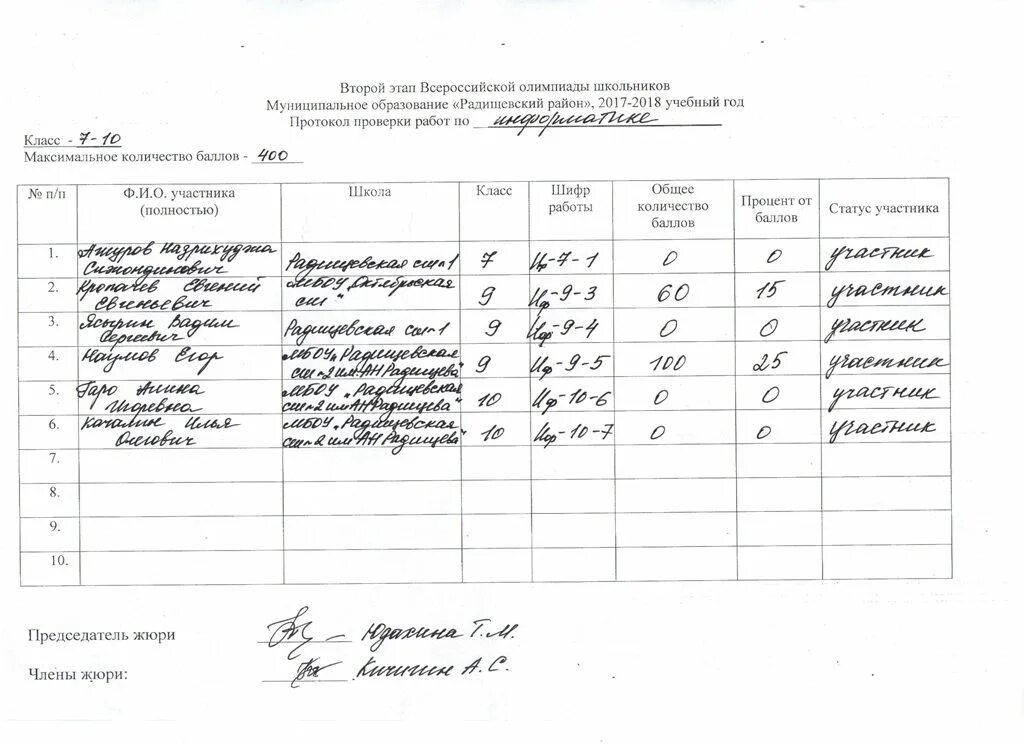 Второй этап Всероссийской олимпиады школьников
Муниципальное образование «Радищевский район», 2017-2018 учебный год
Протокол проверки работ по информатике
Класс - 7-10
Максимальное количество баллов - 400
№ п/п Ф.И.О. участника (полностью) Школа Класс Шифр работы Общее количество баллов Процент от баллов Статус участника
1. Ашуров Назрихуджа Радищевская сш№1 7 Иф-7-1 0 0 участник
2. Кропачев Евгений Евгеньевич МБОУ „Октябрьская сш" 9 Иф-9-3 60 15 участник
3. Ясырин Вадим Сергеевич Радищевская сш№1 9 Иф-9-4 0 0 участник
4. Наумов Егор МБОУ „Радищевская сш№2 им АН Радищева" 9 Иф-9-5 100 25 участник
5. Гаро Алина Игоревна МБОУ „Радищевская сш№2 им АН Радищева" 10 Иф-10-6 0 0 участник
6. Качалин Илья Олегович МБОУ „Радищевская сш№2 им АН Радищева" 10 Иф-10-7 0 0 участник
7.
8.
9.
10.
Председатель жюри Юдахина Т.М.
Члены жюри: Кичигин А.С.